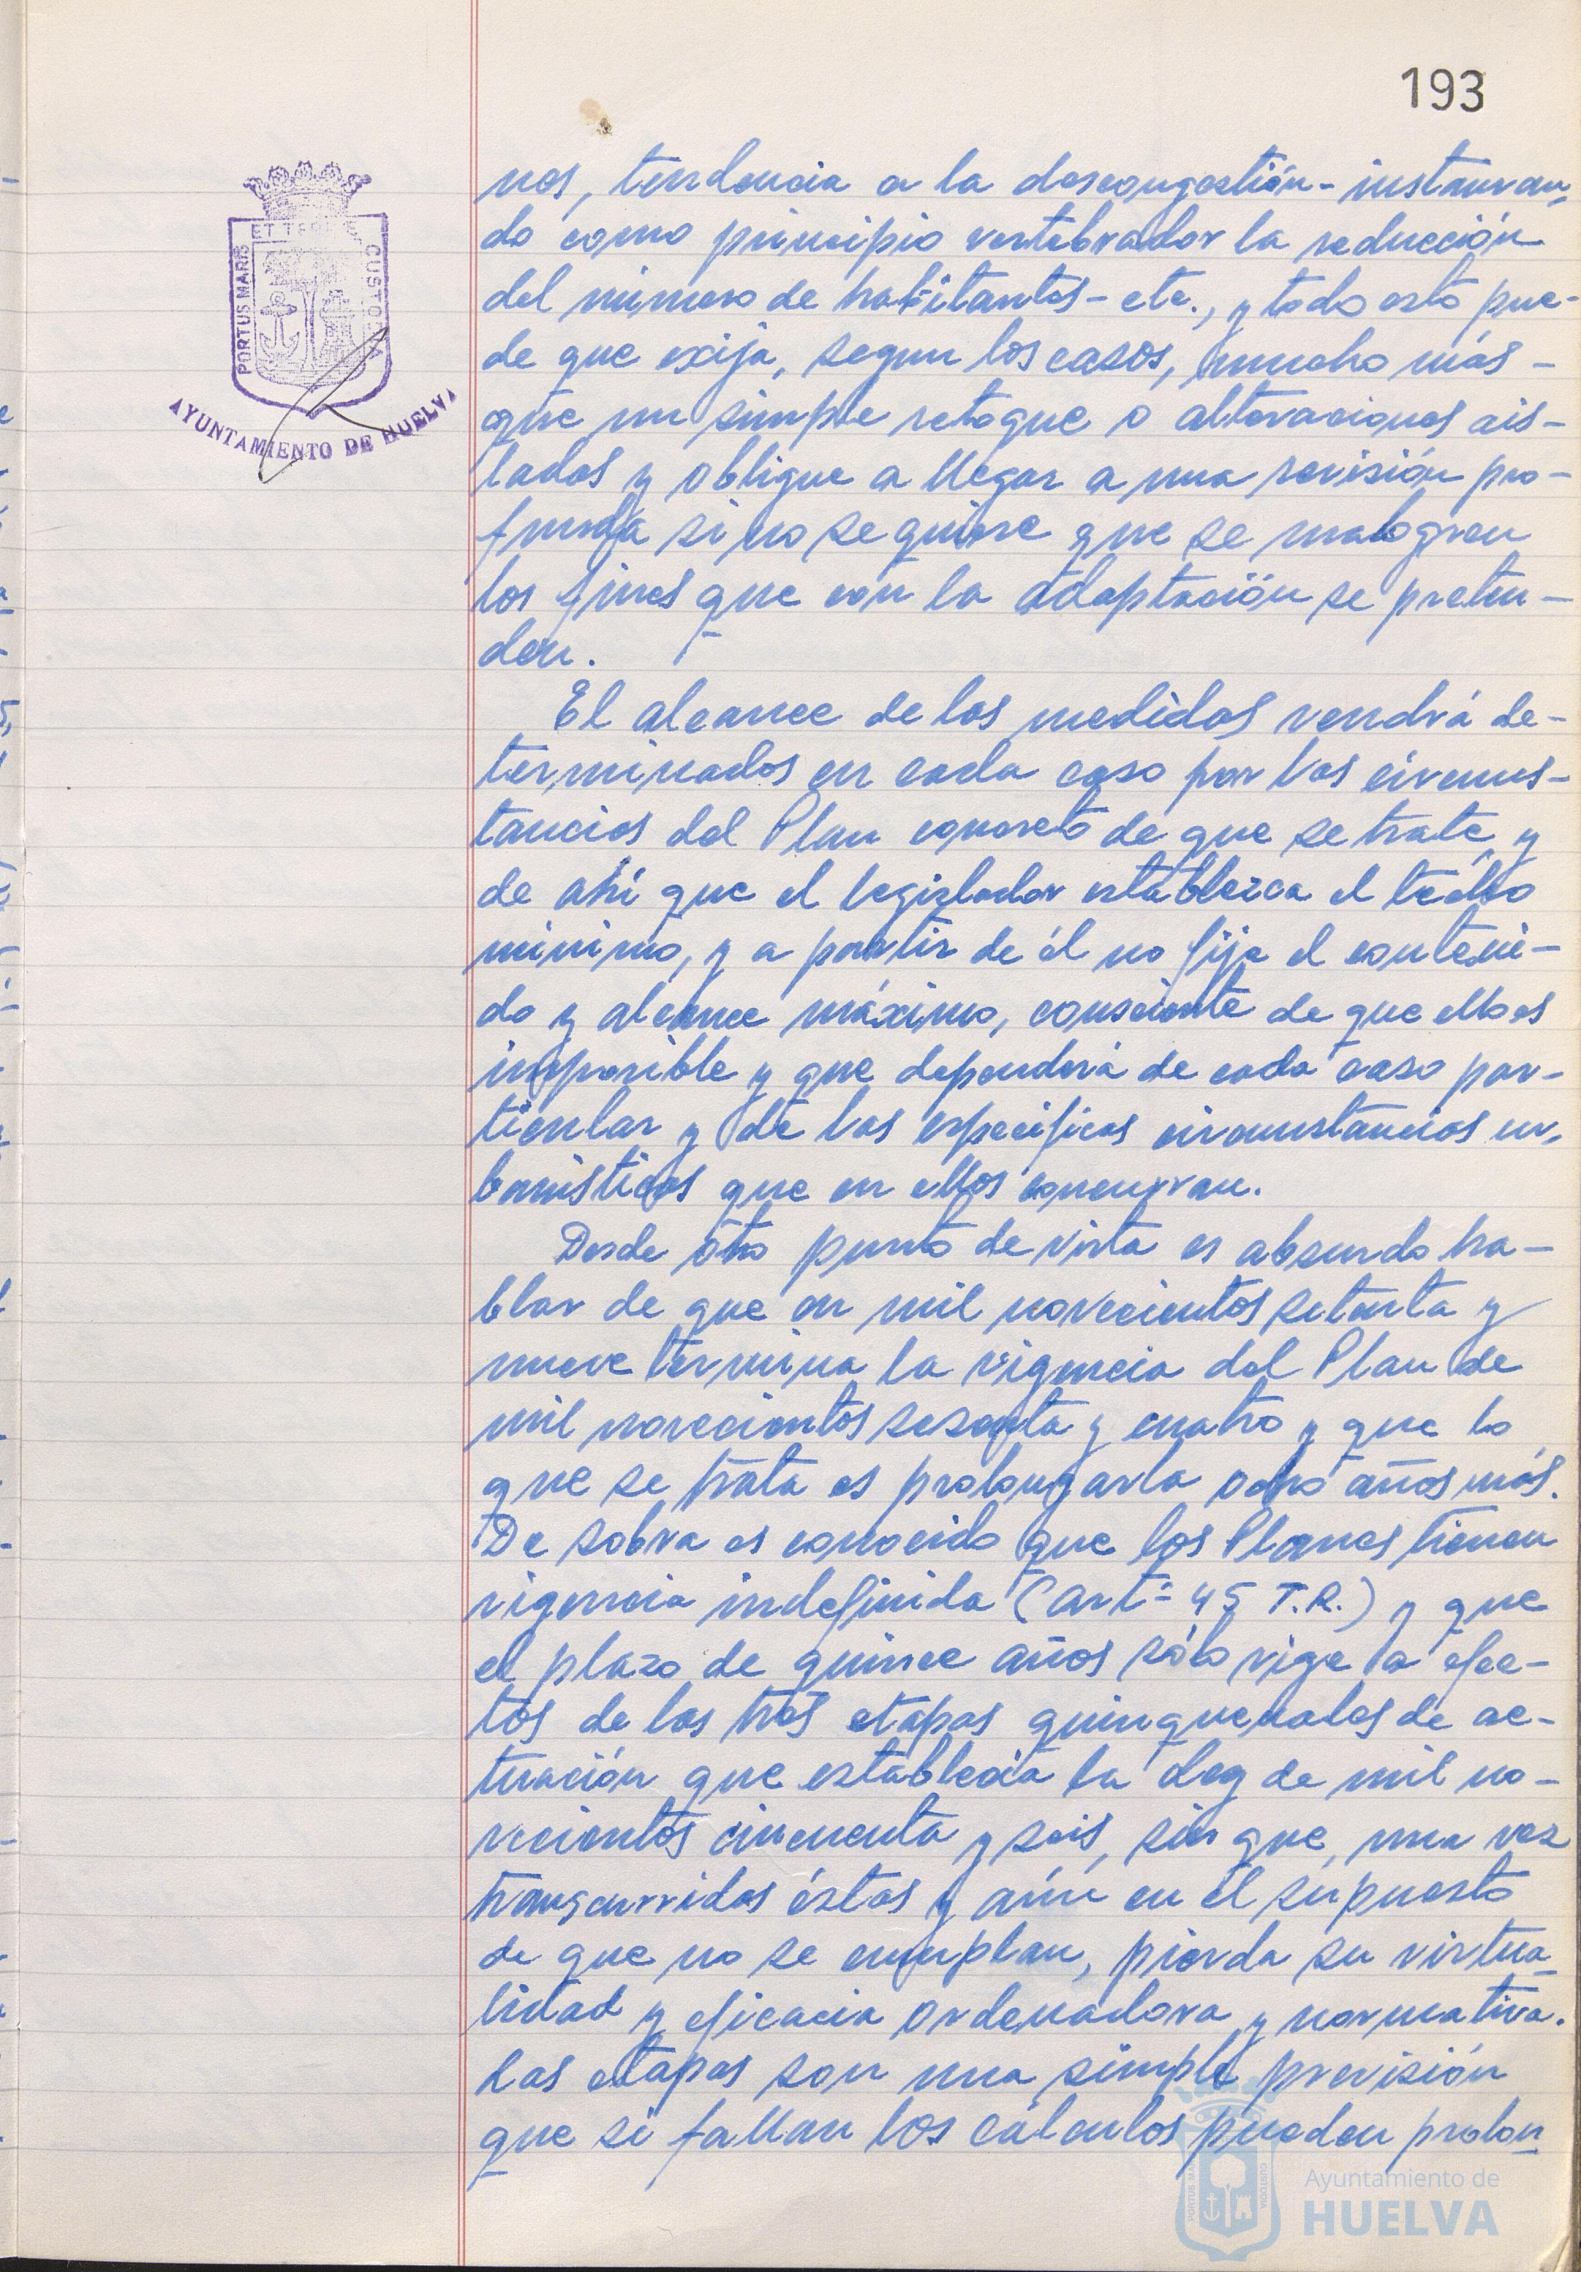 193
ET TERRE
PORTUS MARIS
CUSTODIA
AYUNTAMIENTO DE HUELVA
nos, tendencia a la descongestión - instauran-
do como principio vertebrador la reducción
del número de habitantes - etc., y todo esto pue-
de que exija, segun los casos, mucho más -
que un simple retoque o alteraciones ais-
ladas y obligue a llegar a una revisión pro-
funda si no se quiere que se malogren
los fines que con la adaptación se preten-
den.
El alcance de las medidas vendrá de-
terminados en cada caso por las circuns-
tancias del Plan concreto de que se trate, y
de ahí que el legislador establezca el techo
minimo, y a partir de él no fije el conteni-
do y alcance máximo, consciente de que ello es
imposible y que dependerá de cada caso par-
ticular y de las especificas circunstancias ur-
banisticas que en ellos concurran.
Desde otro punto de vista es absurdo ha-
blar de que en mil novecientos setenta y
nueve termina la vigencia del Plan de
mil novecientos sesenta y cuatro y que lo
que se trata es prolongarla ocho años más.
De sobra es conocido que los Planes tienen
vigencia indefinida (artº 45 T.R.) y que
el plazo de quince años sólo rige a efec-
tos de las tres etapas quinquenales de ac-
tuación que establecía la Ley de mil no-
vecientos cincuenta y seis, sin que, una vez
transcurridas éstas y aún en el supuesto
de que no se cumplan, pierda su virtua-
lidad y eficacia ordenadora y normativa.
Las etapas son una simple previsión
que si fallan los cálculos pueden prolon-
Ayuntamiento de
HUELVA